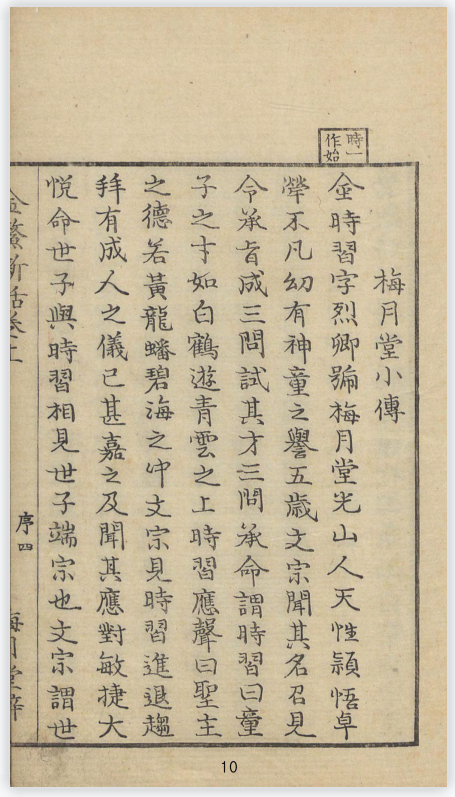 時一
作始
梅月堂小傳
金時習字烈卿號梅月堂光山人天性頴悟卓
犖不凡幼有神童之譽五歲文宗聞其名召見
令承旨成三問試其才三問承命謂時習曰童
子之才如白鶴遊青雲之上時習應聲曰聖主
之德若黃龍蟠碧海之中文宗見時習進退趨
拜有成人之儀已甚嘉之及聞其應對敏捷大
悅命世子與時習相見世子端宗也文宗謂世
金鰲新話卷上 序四 梅月堂梓
10